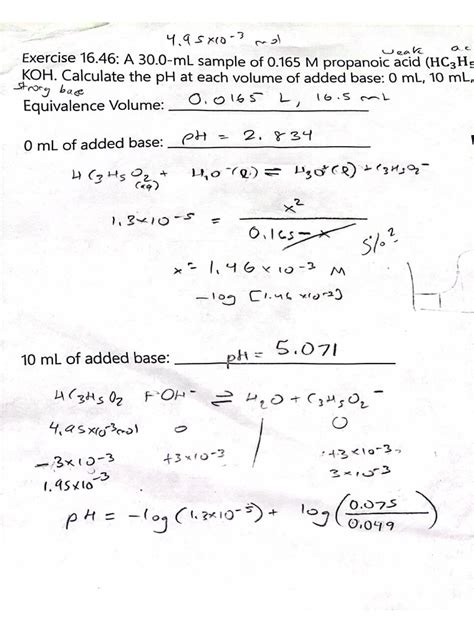 4.95x10⁻³ mol
weak ac
Exercise 16.46: A 30.0-mL sample of 0.165 M propanoic acid (HC₃H₅
KOH. Calculate the pH at each volume of added base: 0 mL, 10 mL,
strong base
Equivalence Volume: 0.0165 L, 16.5 mL
0 mL of added base: pH = 2.834
HC₃H₅O₂(aq) + H₂O(l) ⇌ H₃O⁺(l) + C₃H₅O₂⁻
1.3x10⁻⁵ = x² / 0.165-x
5%?
x = 1.46 x 10⁻³ M
-log [1.46 x10⁻³]
10 mL of added base: pH = 5.071
HC₃H₅O₂ + OH⁻ ⇌ H₂O + C₃H₅O₂⁻
4.95x10⁻³mol 0 0
-3x10⁻³ +3x10⁻³ +3x10⁻³
1.95x10⁻³ 3x10⁻³
pH = -log(1.3x10⁻⁵) + log(0.075/0.049)